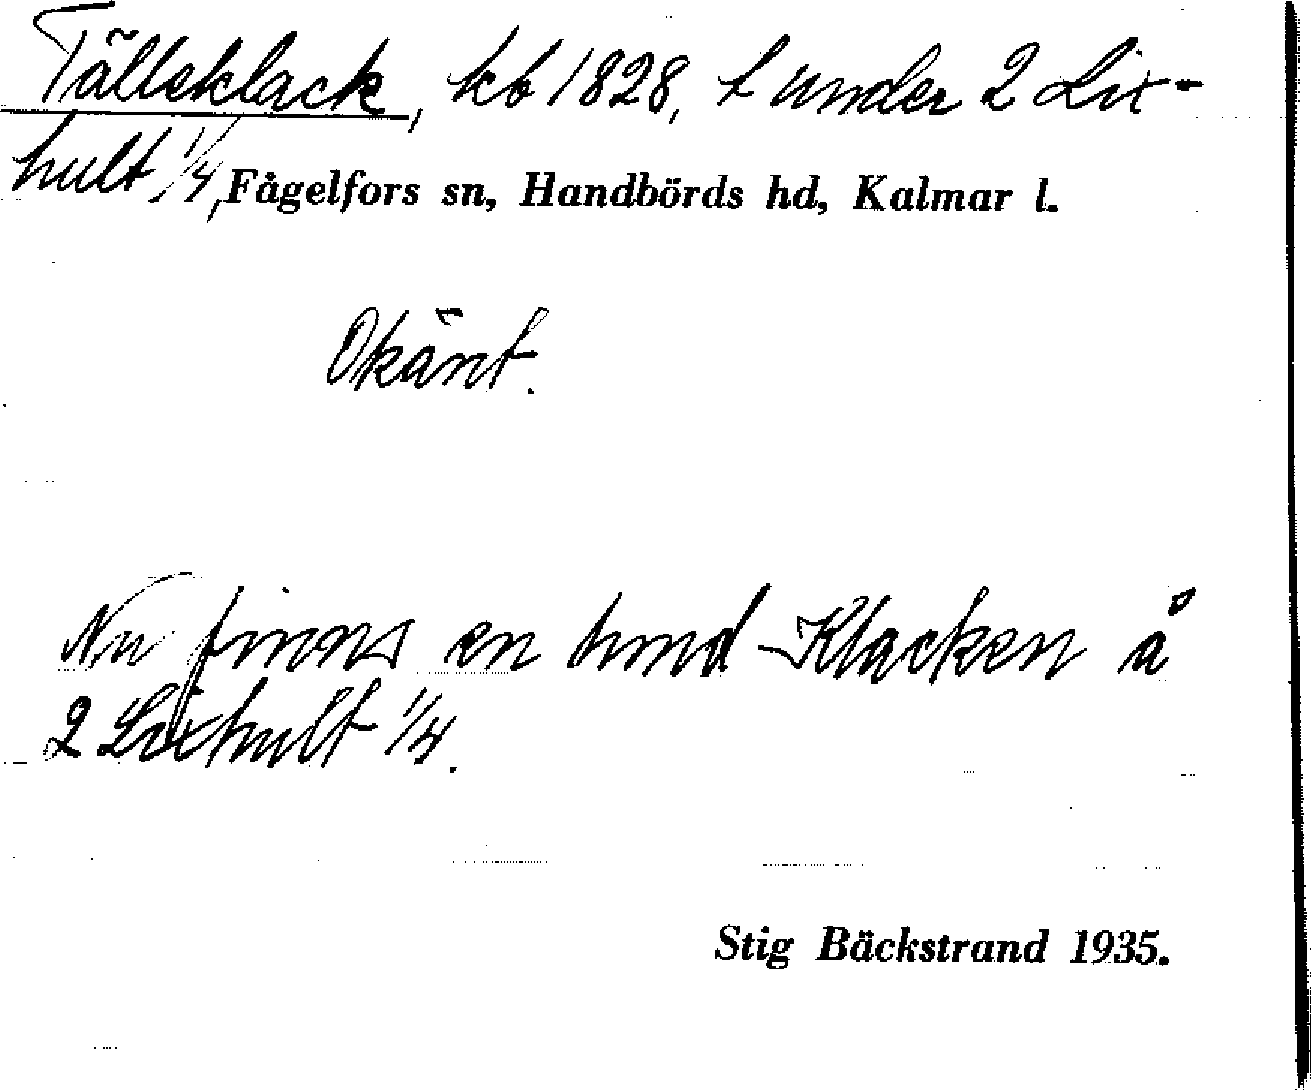 Tälleklack, kb 1828, t under 2 Lix-
hult 1/4, Fågelfors sn, Handbörds hd, Kalmar l.
Okänt.
Nu finns en tmd Klacken å
2 Lixhult 1/4.
Stig Bäckstrand 1935.